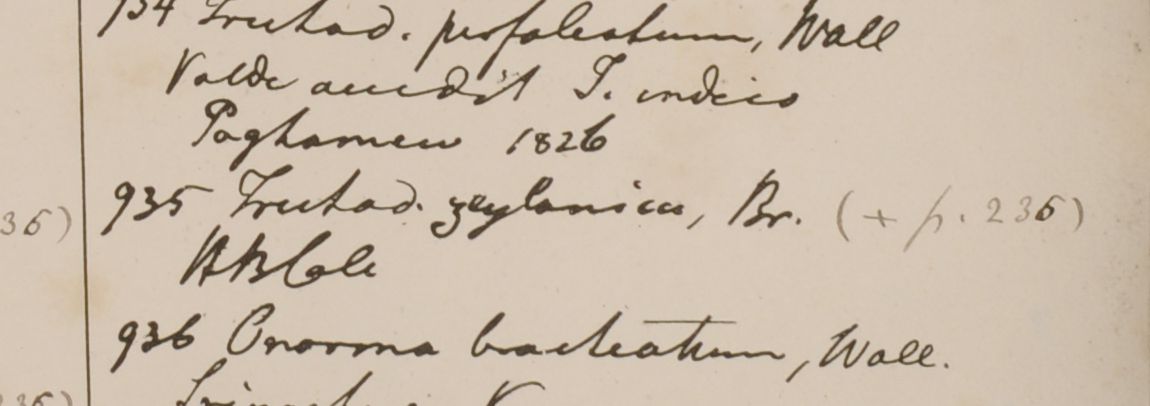 934 Trichod. perfoliatum, Wall
Valde accedit T. indico
Paghamew 1826
36)
935 Trichod. zeylanicum, Br. (+ p. 236)
HBCalc
936 Onosma bracteatum, Wall.
236)